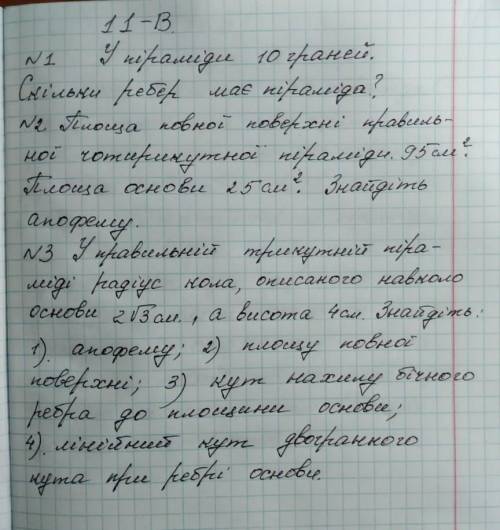 11-В.
№1 У піраміди 10 граней.
Скільки ребер має піраміда?
№2 Площа повної поверхні правиль-
ної чотирикутної піраміди 95 см².
Площа основи 25 см². Знайдіть
апофему.
№3 У правильній трикутній піра-
міді радіус кола, описаного навколо
основи 2√3 см., а висота 4 см. Знайдіть:
1). апофему; 2) площу повної
поверхні; 3) кут нахилу бічного
ребра до площини основи;
4). лінійний кут двогранного
кута при ребрі основи.